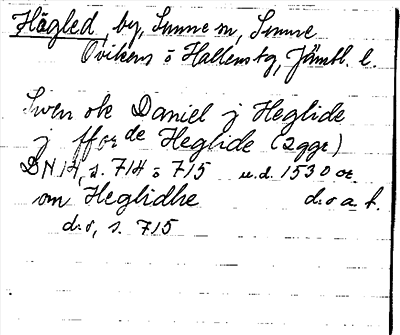 Hågled, by, Sunne sn, Sunne
Ovikens o Hallens tg, Jämtl. l.
Swen ok Daniel j Heglide
j ffor de Heglide (2 ggr)
DN 14, s. 714 o 715 u.d. 1530 or
om Heglidhe d:o a. f.
d:o, s. 715